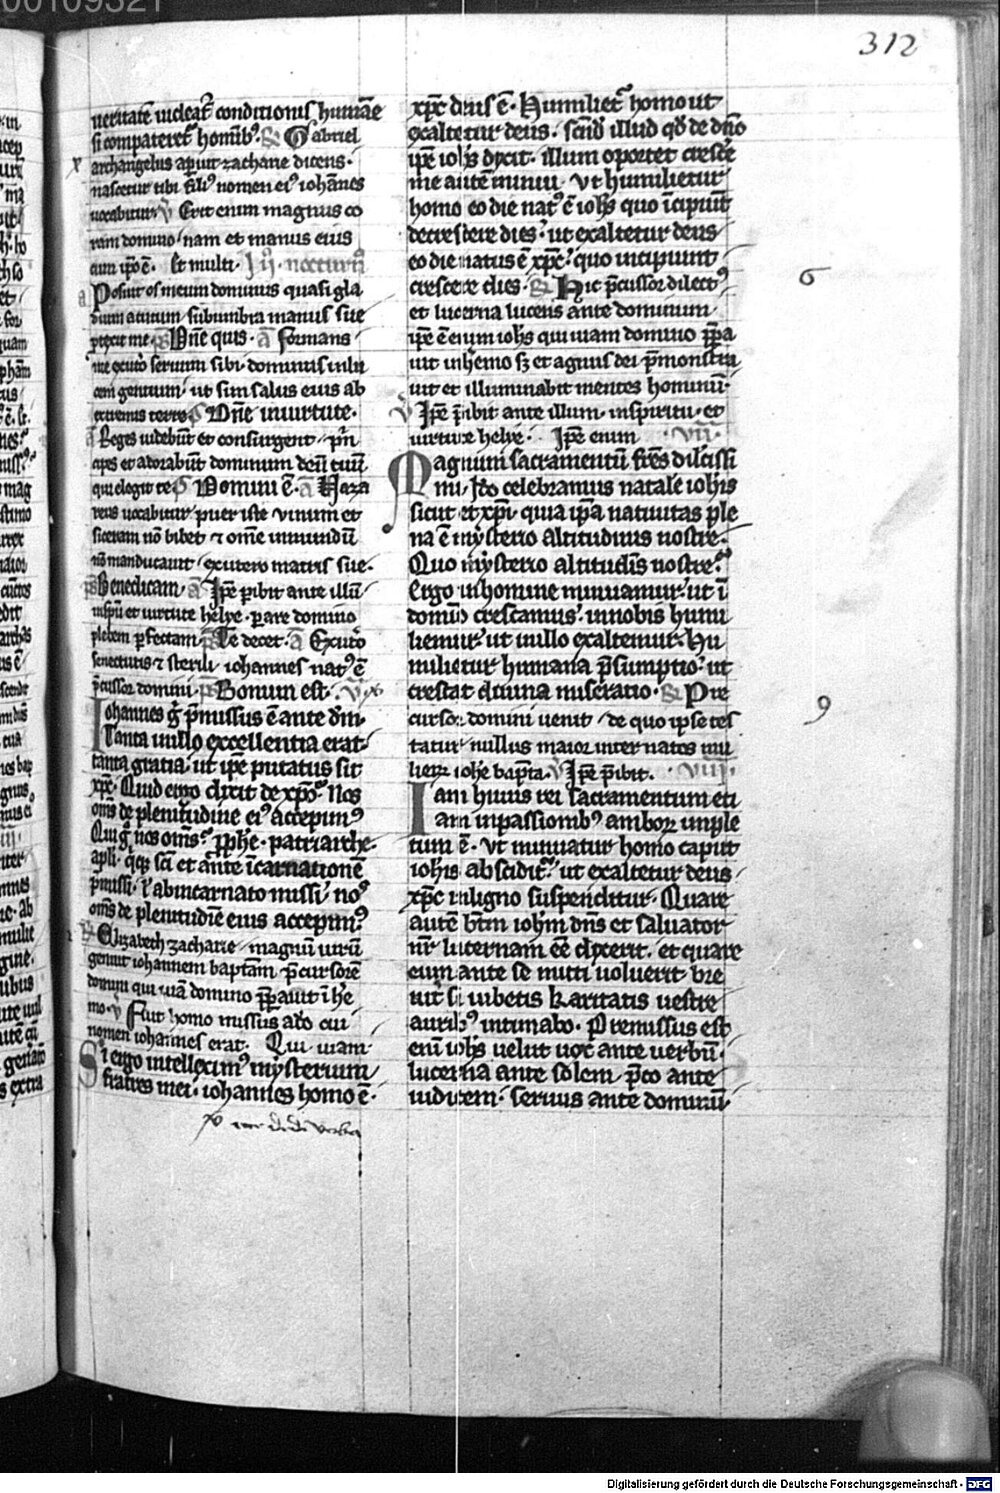 312
ueritatē uideat᷑ conditionis humāe
si compateret᷑ hom̄ib᷒. R Gabriel
archangelus aꝑuit zacharie dicens·
nascetur tibi fili᷒ nomen ei᷒ iohānes
uocabitur v̄ Erit enim magnus co
ram domino· nam et manus eius
cum ip̄o ē. Et multi. In ij. nocturn̄
a Posuit os meum dominus quasi gla
dium acutum· sub umbra manus sue
ꝓtexit me· p̄s Dn̄e quis· a Formans
me ex utō seruum sibi· dominus in lu
cem gentium· ut sim salus eius ab
extremis terre p̄s Dn̄e in uirtute·
a Reges uidebūt et consurgent· prin
cipes et adorabūt dominum deū tuū
qui elegit te p̄s Domini ē· a Naza
reus uocabitur puer iste· vinum et
siceram nō bibet et omē inmundū
nō manducauit· ex utero matris sue·
p̄s Benedicam· a Ip̄e p̄ibit ante illū
in sp̄u et uirtute helye· parare domino
plebem ꝑfectam p̄s Te decet· a Ex utō
senectutis et sterili iohannes nat᷒ ē
p̄cussor domini· p̄s Bonum est·
Iohannes g̊ p̄missus ē ante dn̄m·
Tanta in illo excellentia erat·
tanta gratia· ut ip̄e putatus sit
xp̄c· Quid ergo dixit de xp̄o? Nos
om̄s de plenitudine ei᷒ accepim᷒
Qui g̊ nos om̄s? ꝓphe· patriarche·
apli· qͥq; sc̄i et ante īcarnationē
p̄missi· ł ab incarnato missi nos
om̄s de plenitudīe eius accepim᷒
R Elizabeth zacharie· magnū uirū
genuit iohannem baptam̄ p̄cursorē
domini qui uiā domino p̄parauit ī he
mo· v̄ Fuit homo missus a dō cui
nomen iohannes erat. Qui uiam·
Si ergo intelleximus mysterium
fratres mei· iohannes homo ē·
xp̄c deus ē· Humiliet᷑ homo ut
exaltetur deus· scd̄m illud qd̄ de dn̄o
ip̄e ioh̄s dyxit· illum oportet cresce
me autē minui· Vt humilietur
homo eo die nat᷒ ē ioh̄s quo īcipiūt
decrescere dies· ut exaltetur deus
eo die natus ē xp̄c· quo incipiunt
crescere dies· R Hic p̄cussor dilect᷒ 6
et lucerna lucens ante dominum·
ip̄e ē enim ioh̄s qui uiam domino p̄pa
uit in hemo sꝫ et agnus dei p̄monstra
uit et illuminabit mentes hominū·
v̄ Ip̄e p̄ibit ante illum· in spiritu et
uirtute helye· Ip̄e enim vij·
Magnum sacramentū frēs dilcissi
mi· Ido celebramus natale ioh̄is
sicut et xp̄i· quia ip̄a natiuitas ple
na ē mysterio altitudinis nostre·
Quo mysterio altitudīs nostre?
Ergo in homine minuamur· ut ī
domīo crescamus· in nobis humi
liemur· ut in illo exaltemur· Hu
milietur humana p̄sumptio· ut
crescat diuina miseratio· R Pre
cursor domini uenit· de quo ipse tes 9
tatur· nullus maior inter natos mu
lierꝝ iohe bap̄ta. v̄ Ip̄e p̄ibit. viij·
Iam huius rei sacramentum eti
am in passionib᷒ amborꝝ imple
tum ē· Vt minuatur homo caput
ioh̄is abscidit᷑· ut exaltetur deus
xp̄c in ligno suspenditur· Quare
autē btm̄ iohm̄ dn̄s et saluator
nr̄ lucernam eē dyxerit· et quare
eum ante se mitti uoluerit bre
uit̄ si iubetis karitatis uestre
aurib᷒ intimabo· Premissus est
enī ioh̄s uelut uox ante uerbū·
lucerna ante solem p̄co ante
iudicem· seruus ante dominū·
Digitalisierung gefördert durch die Deutsche Forschungsgemeinschaft · DFG